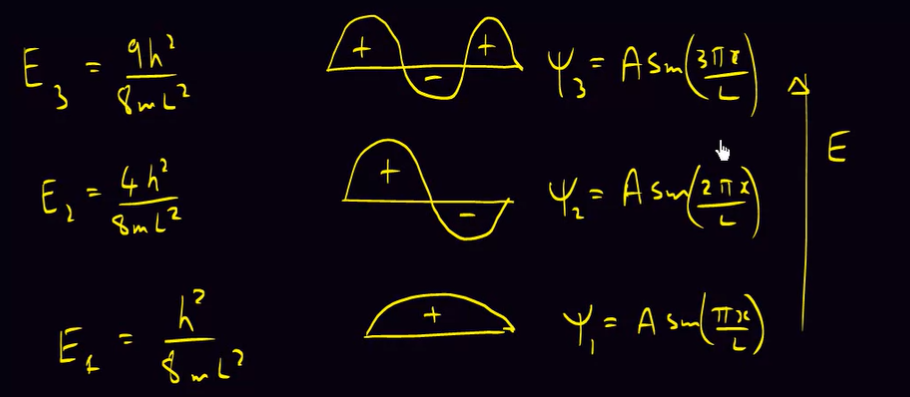 E₃ = 9h²/8mL² + - + Ψ₃ = A sin(3πx/L)
E
E₂ = 4h²/8mL² + - Ψ₂ = A sin(2πx/L)
E₁ = h²/8mL² + Ψ₁ = A sin(πx/L)